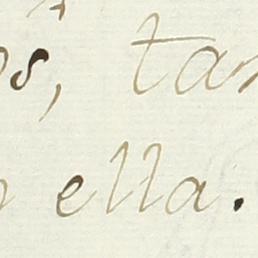 os, tan
ella.